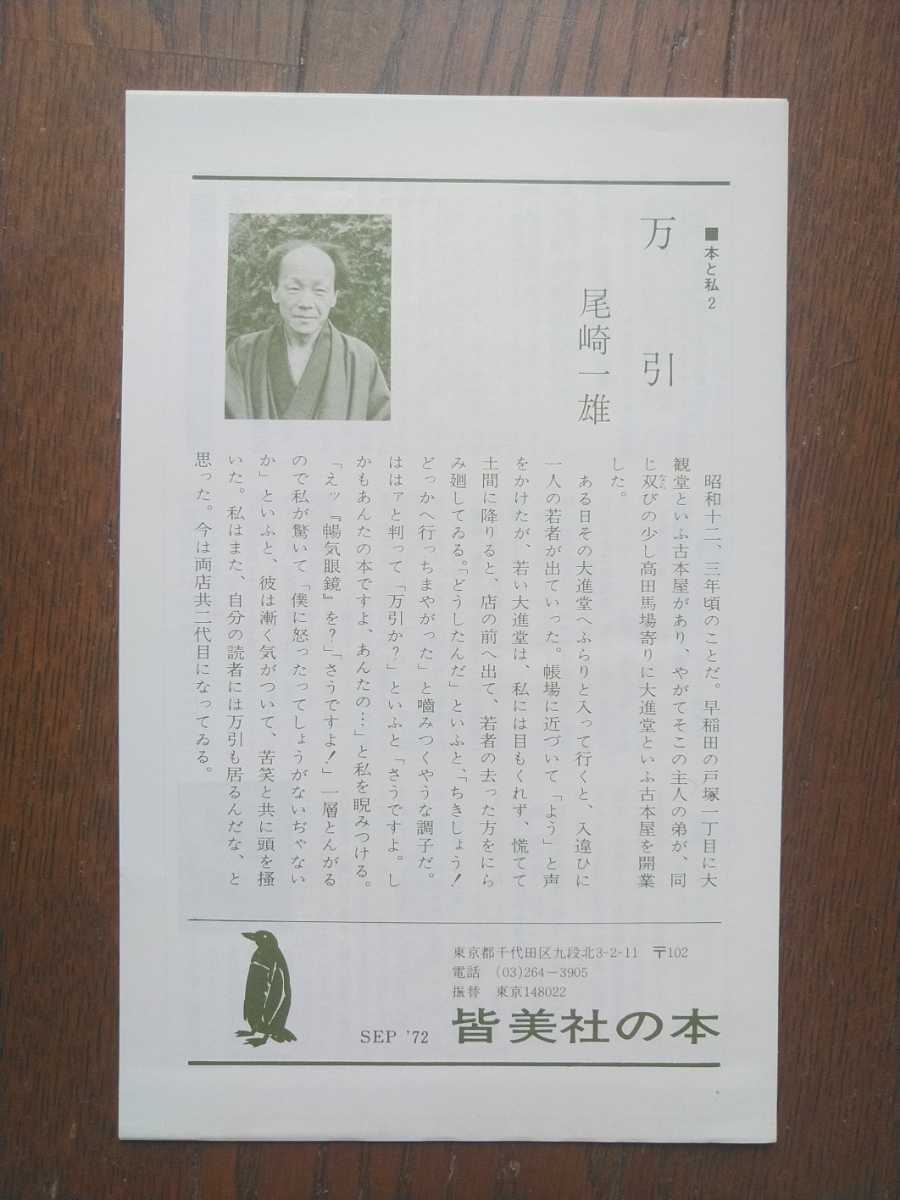 ■本と私2
万引
尾崎一雄
昭和十二、三年頃のことだ。早稲田の戸塚一丁目に大
観堂といふ古本屋があり、やがてそこの主人の弟が、同
じ双びの少し高田馬場寄りに大進堂といふ古本屋を開業
した。
ある日その大進堂へふらりと入って行くと、入違ひに
一人の若者が出ていった。帳場に近づいて「よう」と声
をかけたが、若い大進堂は、私には目もくれず、慌てて
土間に降りると、店の前へ出て、若者の去った方をにら
み廻してゐる。「どうしたんだ」といふと、「ちきしょう!
どっかへ行っちまやがった」と嚙みつくやうな調子だ。
ははァと判って「万引か?」といふと「さうですよ。し
かもあんたの本ですよ、あんたの…」と私を睨みつける。
「えッ『暢気眼鏡』を?」「さうですよ!」一層とんがる
ので私が驚いて「僕に怒ったってしょうがないぢゃない
か」といふと、彼は漸く気がついて、苦笑と共に頭を掻
いた。私はまた、自分の読者には万引も居るんだな、と
思った。今は両店共二代目になってゐる。
東京都千代田区九段北3-2-11 〒102
電話 (03)264-3905
振替 東京148022
SEP '72 皆美社の本